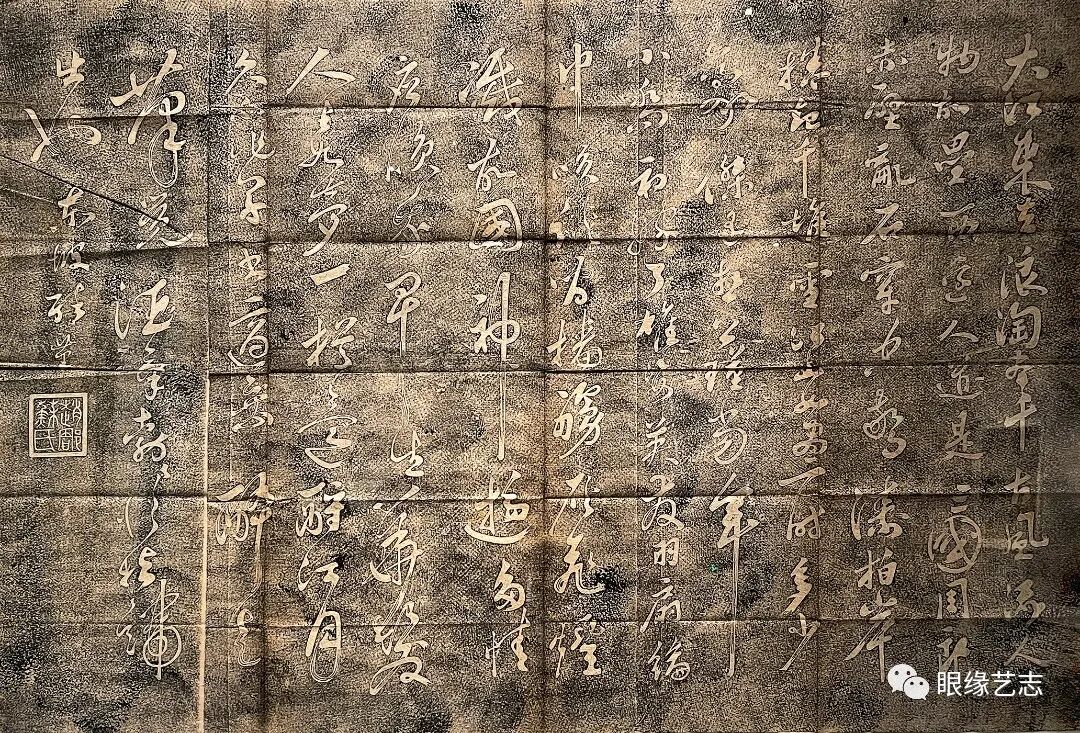 大江東去浪淘盡千古風流人
物故壘西邊人道是三國周郎
赤壁亂石穿空驚濤拍岸
捲起千堆雪江山如畫一時多少
豪傑遙想公瑾當年
小喬初嫁了雄姿英發羽扇綸
巾談笑間檣艣灰飛煙
滅故國神遊多情
應笑我早生華髮
人生如夢一樽還酹江月
久不作草書適乘醉走
筆覺酒氣勃勃從指端
出也 東坡醉筆
趙郡蘇氏
眼缘艺志